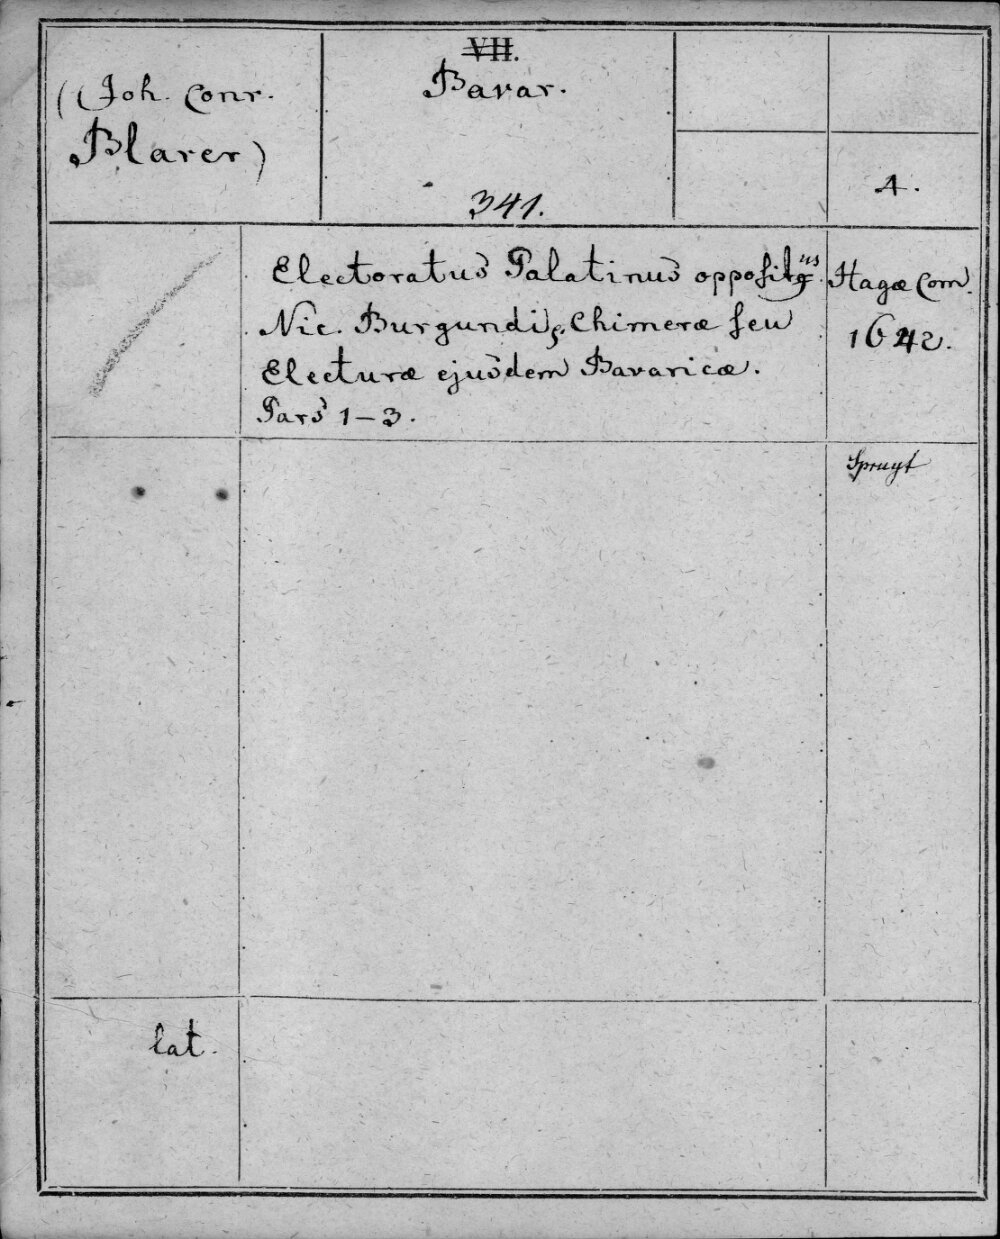 (Joh. Conr.
Blarer)
VII.
Bavar.
341.
4.
Electoratus Palatinus oppositus
Nic. Burgundi, Chimeræ seu
Electuræ ejusdem Bavaricæ.
Pars 1-3.
Hagæ Com.
1642.
Spruyt
lat.